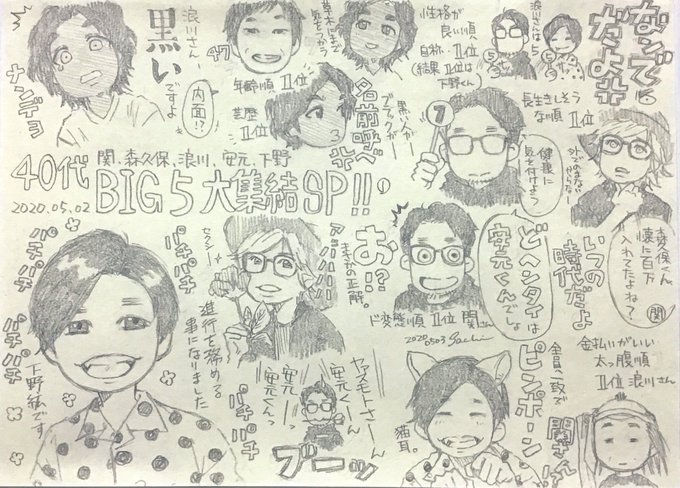 なンでる
だよ!!
浪川さんは5
性格が
良い順へ
自称 1位
(結果 1位は
下野くん)
47
年齢順 1位
芸歴
1位
名前呼べ
黒い人が…
ブラックが…
浪川さん…
黒い
ですよ
内面!?
ナンデョ
長生きしそう
な順 1位
7
健康に
気を付けよう
関、森久保、浪川、安元、下野
40代
BIG5大集結SP!!
2020.05.02
森久保くん
懐に百万
入れてたよね?
関
いつの
時代だよ
どヘンタイは
安元くんでしょ
ド変態順 1位 関さん
2020.0503 Sachi
お!?
まさかの正解。
アババババ
セクシー
パチパチ
パチパチ
パチパチ
パチパチ
進行を務める
事になりました
下野紘です
ヤスモトさーん
安元くーん
安元くんっ
安元ーっ
ブーッ
猫耳。
全員一致で
ピンポーン
金払いがいい
太っ腹順
1位 浪川さん
関さん